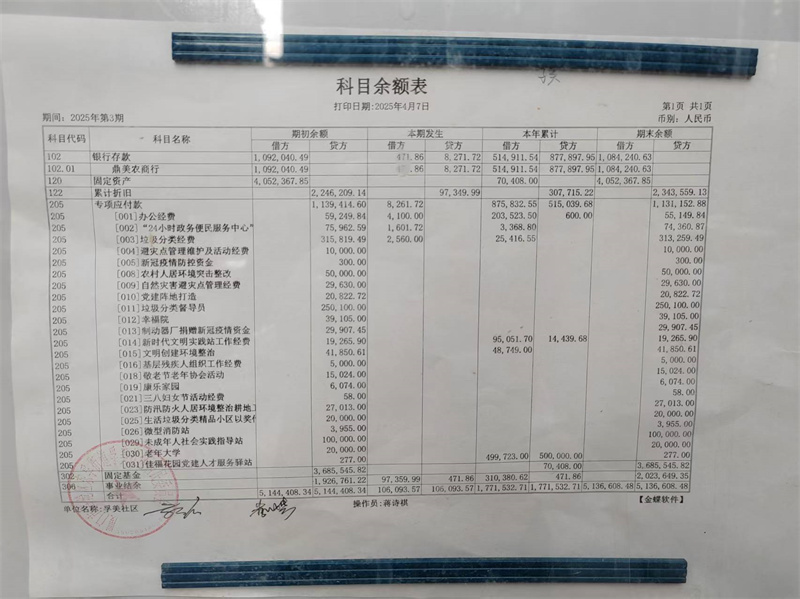 科目余额表
打印日期:2025年4月7日
第1页 共1页
期间: 2025年第3期
币别: 人民币
科目代码 科目名称 期初余额 本期发生 本年累计 期末余额
借方 贷方 借方 贷方 借方 贷方 借方 贷方
102 银行存款 1,092,040.49 471.86 8,271.72 514,911.54 877,897.95 1,084,240.63
102.01 鼎美农商行 1,092,040.49 471.86 8,271.72 514,911.54 877,897.95 1,084,240.63
120 固定资产 4,052,367.85 70,408.00 4,052,367.85
122 累计折旧 2,246,209.14 97,349.99 307,715.22 2,343,559.13
205 专项应付款 1,139,414.60 8,261.72 875,832.55 515,039.68 1,131,152.88
205 [001]办公经费 59,249.84 4,100.00 203,523.50 600.00 55,149.84
205 [002]“24小时政务便民服务中心” 75,962.59 1,601.72 3,368.80 74,360.87
205 [003]垃圾分类经费 315,819.49 2,560.00 25,416.55 313,259.49
205 [004]避灾点管理维护及活动经费 10,000.00 10,000.00
205 [005]新冠疫情防控资金 300.00 300.00
205 [008]农村人居环境突击整改 50,000.00 50,000.00
205 [009]自然灾害避灾点管理经费 29,630.00 29,630.00
205 [010]党建阵地打造 20,822.72 20,822.72
205 [011]垃圾分类督导员 250,100.00 250,100.00
205 [012]幸福院 39,105.00 39,105.00
205 [013]制动器厂捐赠新冠疫情资金 29,907.45 29,907.45
205 [014]新时代文明实践站工作经费 19,265.90 95,051.70 14,439.68 19,265.90
205 [015]文明创建环境整治 41,850.61 48,749.00 41,850.61
205 [016]基层残疾人组织工作经费 5,000.00 5,000.00
205 [018]敬老节老年协会活动 15,024.00 15,024.00
205 [019]康乐家园 6,074.00 6,074.00
205 [021]三八妇女节活动经费 58.00 58.00
205 [023]防汛防火人居环境整治耕地 27,013.00 27,013.00
205 [025]生活垃圾分类精品小区以奖 20,000.00 20,000.00
205 [026]微型消防站 3,955.00 3,955.00
205 [029]未成年人社会实践指导站 100,000.00 100,000.00
205 [030]老年大学 20,000.00 20,000.00
205 [031]佳福花园党建人才服务驿站 277.00 499,723.00 500,000.00 277.00
302 固定基金 3,685,545.82 70,408.00 3,685,545.82
306 事业结余 1,926,761.22 97,359.99 471.86 310,380.62 471.86 2,023,649.35
合计 5,144,408.34 5,144,408.34 106,093.57 106,093.57 1,771,532.71 1,771,532.71 5,136,608.48 5,136,608.48
单位名称:孚美社区 操作员:蒋诗棋 【金蝶软件】